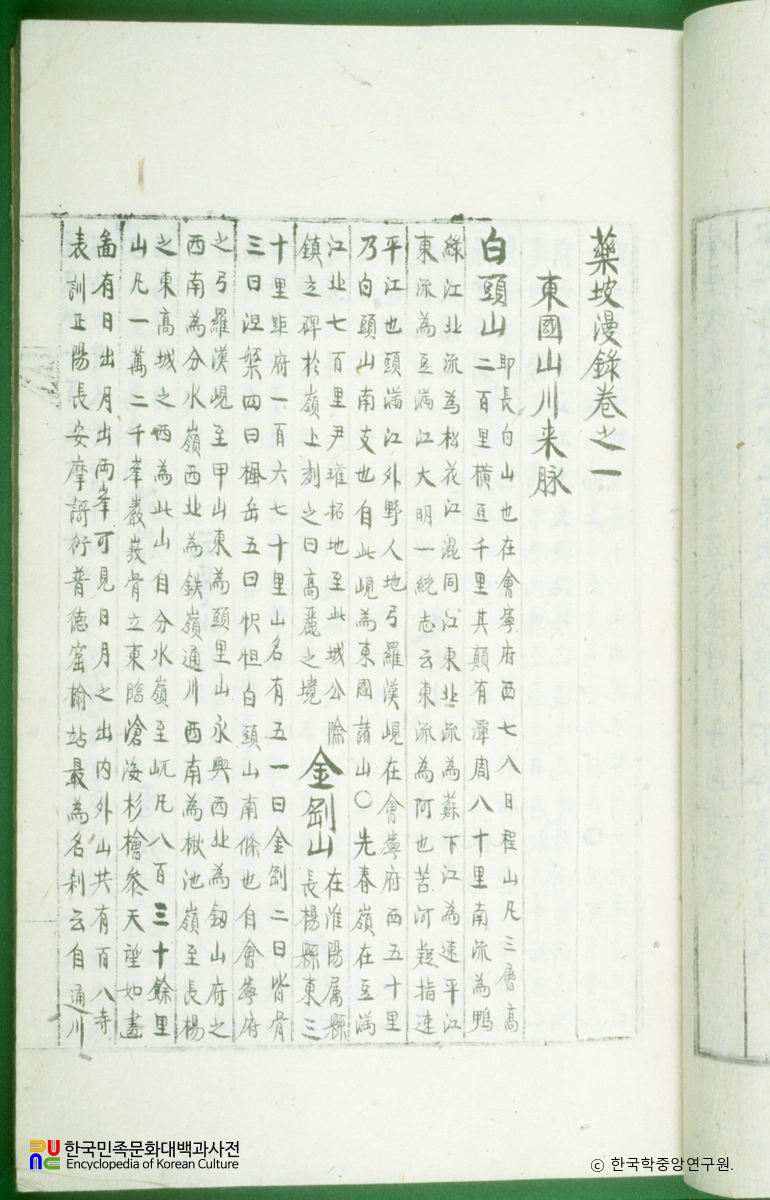 藥坡漫錄卷之一
東國山川来脉
白頭山 即長白山也在會寧府西七八日程山凡三層高
二百里橫亘千里其顛有潭周八十里南流為鴨
綠江北流為松花江混同江東北流為蘇下江為速平江
東流為豆滿江大明一統志云東流為阿也苦河疑指速
平江也頭滿江外野人地弓羅漢峴在會寧府西五十里
乃白頭山南支也自此峴為東國諸山○先春嶺在豆滿
江北七百里尹瓘拓地至此城公險
鎮立碑於嶺上刻之曰高麗之境
金剛山 在淮陽属縣
長楊縣東三
十里距府一百六七十里山名有五一曰金剛二曰皆骨
三曰涅槃四曰楓岳五曰怾怛白頭山南條也自會寧府
之弓羅漢峴至甲山東為頭里山永興西北為釼山府之
西南為分水嶺西北為鉄嶺通川西南為楸池嶺至長楊
之東高城之西為此山自分水嶺至此凡八百三十餘里
山凡一萬二千峯巖嶷骨立東臨滄海杉檜參天望如畫
啚有日出月出两峯可見日月之出内外山共有百八寺
表訓正陽長安摩訶衍普德窟榆岾最為名刹云自通川
한국민족문화대백과사전
Encyclopedia of Korean Culture
ⓒ 한국학중앙연구원.